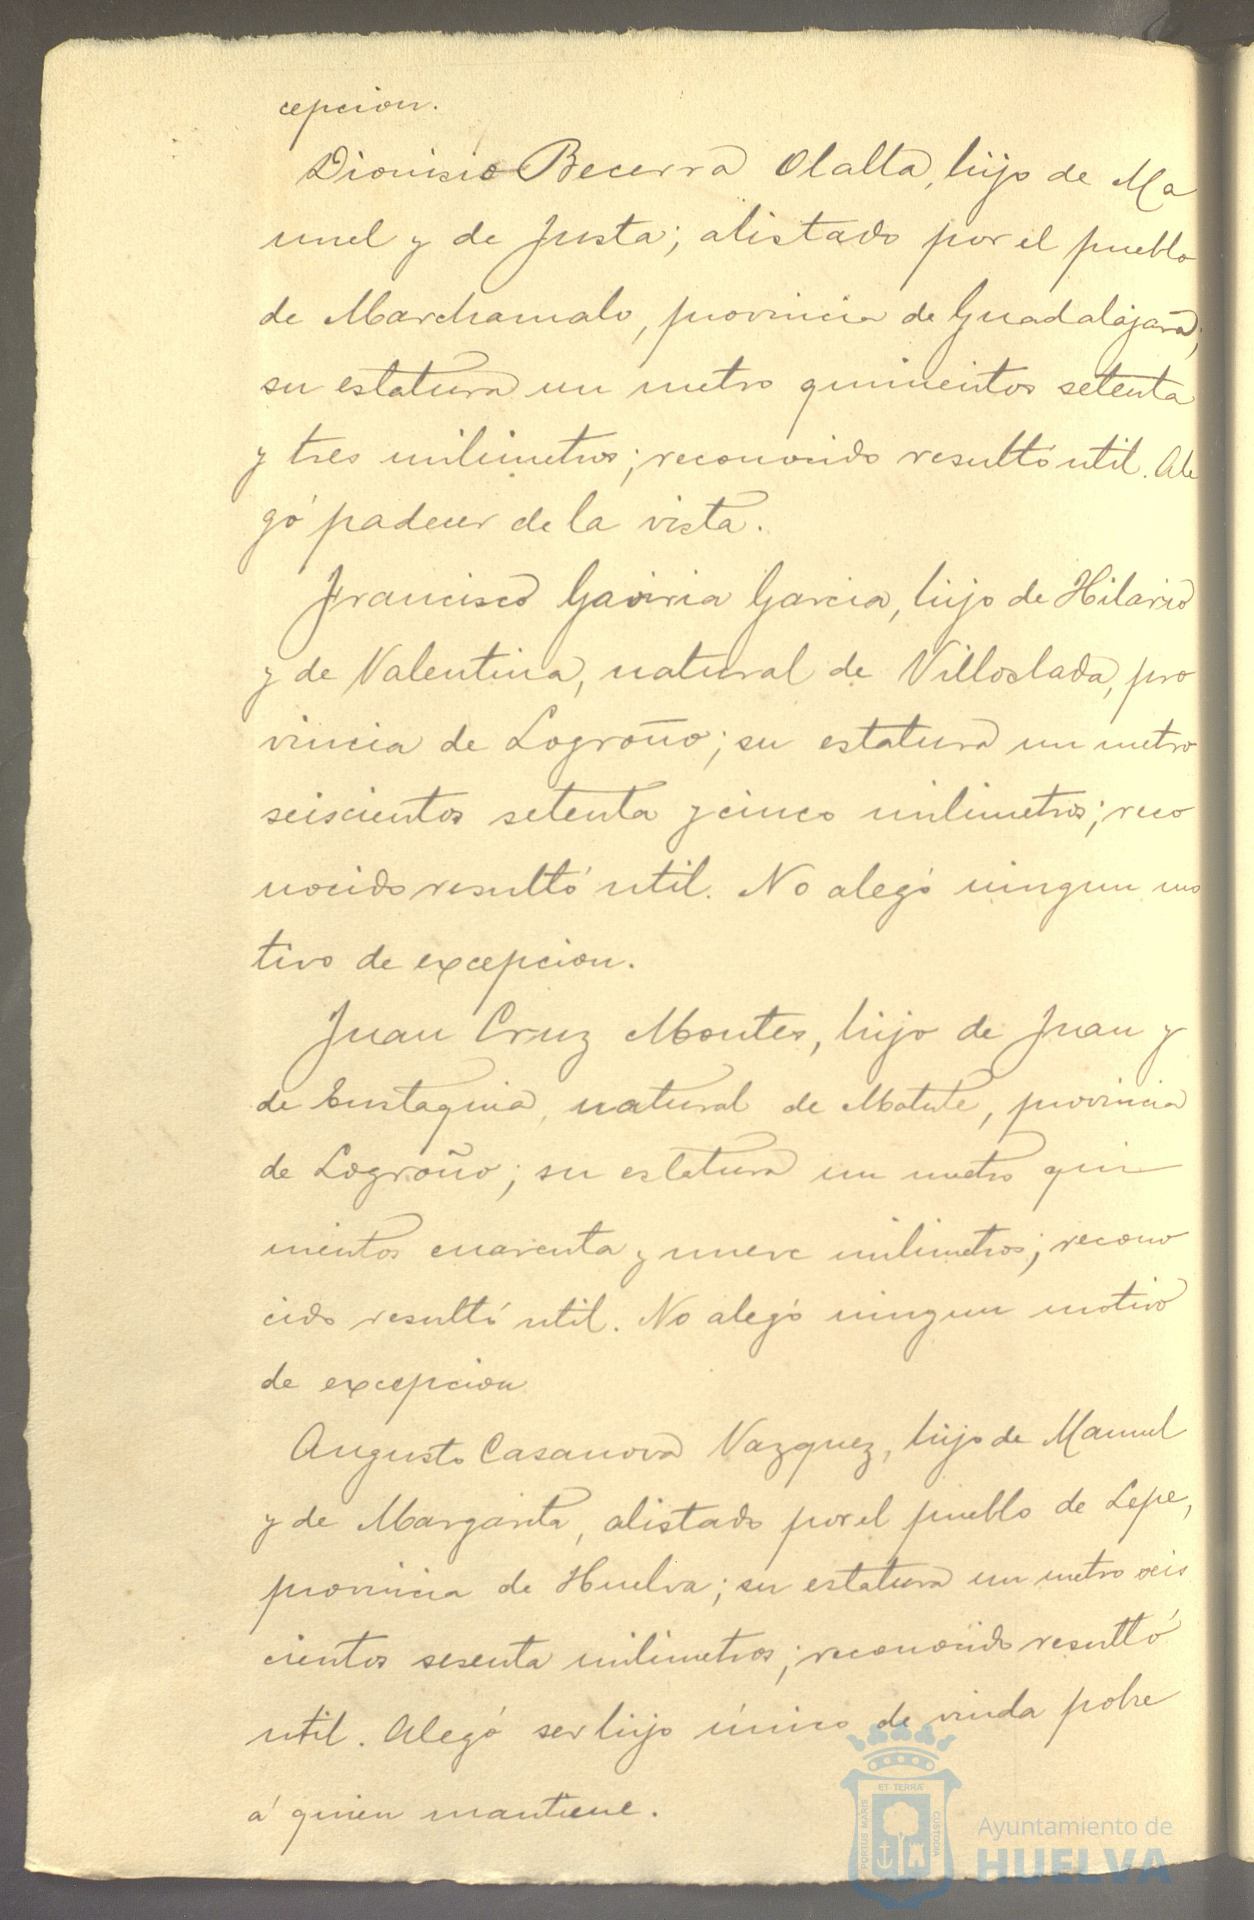 cepcion.
Dionisio Becerra Olalta, hijo de Ma
nuel y de Justa; alistado por el pueblo
de Marchamalo, provincia de Guadalajara;
su estatura un metro quinientos setenta
y tres milimetros; reconocido resultó util. Ale
gó padecer de la vista.
Francisco Gaviria Garcia, hijo de Hilario
y de Valentina, natural de Villoslada, pro
vincia de Logroño; su estatura un metro
seiscientos setenta y cinco milimetros; reco
nocido resultó util. No alegó ningun mo
tivo de excepcion.
Juan Cruz Montes, hijo de Juan y
de Eustaquia, natural de Matute, provincia
de Logroño; su estatura un metro qui
nientos cuarenta y nueve milimetros; recono
cido resultó util. No alegó ningun motivo
de excepcion
Augusto Casanova Vazquez, hijo de Manuel
y de Margarita, alistado por el pueblo de Lepe,
provincia de Huelva; su estatura un metro seis
cientos sesenta milimetros; reconocido resultó
util. Alegó ser hijo único de viuda pobre
á quien mantiene.
ET TERRÆ
PORTUS MARIS
CUSTODIA
Ayuntamiento de
HUELVA